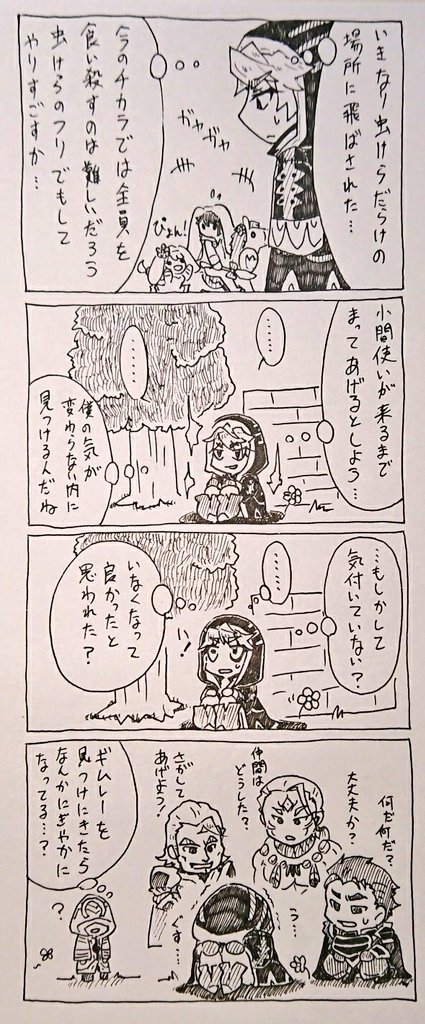 いきなり虫けらだらけの
場所に飛ばされた…
ガヤガヤ
ぴょん!
今のチカラでは全員を
食い殺すのは難しいだろう
虫けらのフリでもして
やりすごすか…
小間使いが来るまで
まってあげるとしよう…
……
……
僕の気が
変わらない内に
見つけるんだね
…もしかして
気付いていない?
……
!
いなくなって
良かったと
思われた?
何だ何だ?
大丈夫か?
仲間は
どうした?
さがして
あげよう!
う…
ぐす…
ギムレーを
見つけにきたら
なんかにぎやかに
なってる…?
?